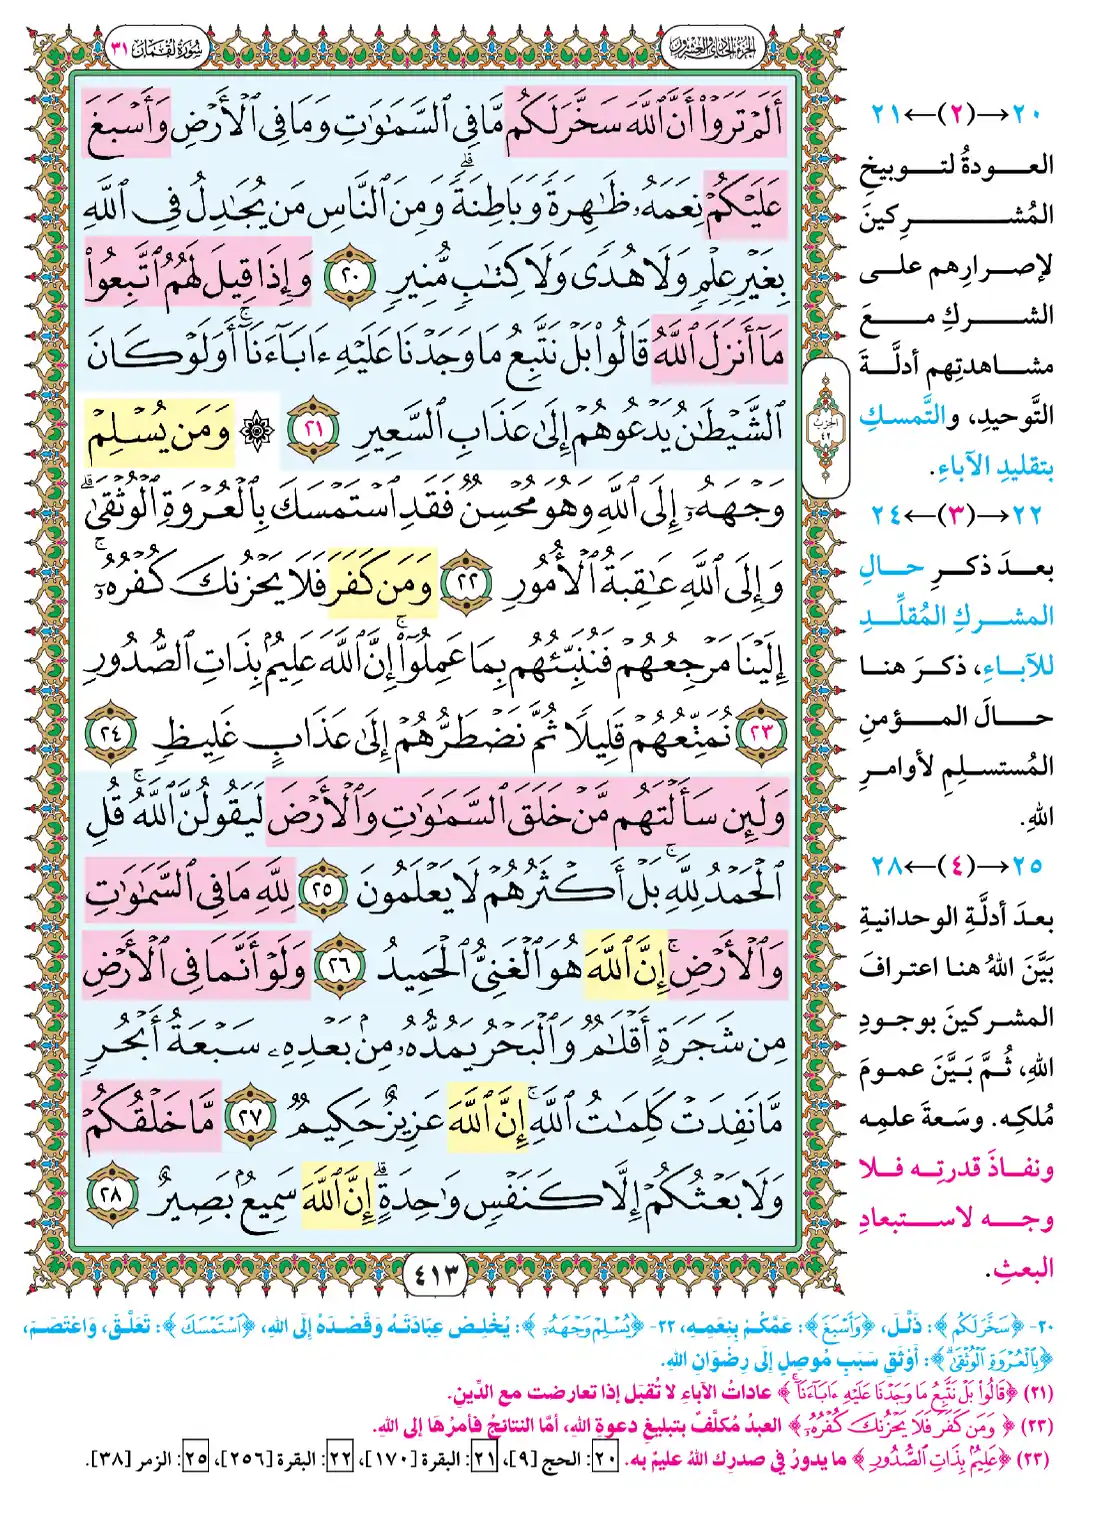 الجزء الحادي والعشرون
سورة لقمان ٣١
أَلَمْ تَرَوْا۟ أَنَّ ٱللَّهَ سَخَّرَ لَكُم مَّا فِى ٱلسَّمَـٰوَٰتِ وَمَا فِى ٱلْأَرْضِ وَأَسْبَغَ
عَلَيْكُمْ نِعَمَهُۥ ظَـٰهِرَةً وَبَاطِنَةً ۗ وَمِنَ ٱلنَّاسِ مَن يُجَـٰدِلُ فِى ٱللَّهِ
بِغَيْرِ عِلْمٍ وَلَا هُدًى وَلَا كِتَـٰبٍ مُّنِيرٍ ٢٠ وَإِذَا قِيلَ لَهُمُ ٱتَّبِعُوا۟
مَآ أَنزَلَ ٱللَّهُ قَالُوا۟ بَلْ نَتَّبِعُ مَا وَجَدْنَا عَلَيْهِ ءَابَآءَنَآ ۚ أَوَلَوْ كَانَ
ٱلشَّيْطَـٰنُ يَدْعُوهُمْ إِلَىٰ عَذَابِ ٱلسَّعِيرِ ٢١ ۞ وَمَن يُسْلِمْ
وَجْهَهُۥٓ إِلَى ٱللَّهِ وَهُوَ مُحْسِنٌ فَقَدِ ٱسْتَمْسَكَ بِٱلْعُرْوَةِ ٱلْوُثْقَىٰ ۗ
وَإِلَى ٱللَّهِ عَـٰقِبَةُ ٱلْأُمُورِ ٢٢ وَمَن كَفَرَ فَلَا يَحْزُنكَ كُفْرُهُۥٓ ۚ
إِلَيْنَا مَرْجِعُهُمْ فَنُنَبِّئُهُم بِمَا عَمِلُوٓا۟ ۚ إِنَّ ٱللَّهَ عَلِيمٌۢ بِذَاتِ ٱلصُّدُورِ
٢٣ نُمَتِّعُهُمْ قَلِيلًا ثُمَّ نَضْطَرُّهُمْ إِلَىٰ عَذَابٍ غَلِيظٍ ٢٤
وَلَئِن سَأَلْتَهُم مَّنْ خَلَقَ ٱلسَّمَـٰوَٰتِ وَٱلْأَرْضَ لَيَقُولُنَّ ٱللَّهُ ۚ قُلِ
ٱلْحَمْدُ لِلَّهِ ۚ بَلْ أَكْثَرُهُمْ لَا يَعْلَمُونَ ٢٥ لِلَّهِ مَا فِى ٱلسَّمَـٰوَٰتِ
وَٱلْأَرْضِ ۚ إِنَّ ٱللَّهَ هُوَ ٱلْغَنِىُّ ٱلْحَمِيدُ ٢٦ وَلَوْ أَنَّمَا فِى ٱلْأَرْضِ
مِن شَجَرَةٍ أَقْلَـٰمٌ وَٱلْبَحْرُ يَمُدُّهُۥ مِنۢ بَعْدِهِۦ سَبْعَةُ أَبْحُرٍ
مَّا نَفِدَتْ كَلِمَـٰتُ ٱللَّهِ ۗ إِنَّ ٱللَّهَ عَزِيزٌ حَكِيمٌ ٢٧ مَّا خَلْقُكُمْ
وَلَا بَعْثُكُمْ إِلَّا كَنَفْسٍ وَٰحِدَةٍ ۗ إِنَّ ٱللَّهَ سَمِيعٌۢ بَصِيرٌ ٢٨
الحزب
٤٢
٤١٣
٢٠→(٢)←٢١
العودةُ لتوبيخِ
المُشركينَ
لإصرارِهم على
الشركِ معَ
مشاهدتِهم أدلَّةَ
التَّوحيدِ، والتَّمسكِ
بتقليدِ الآباءِ.
٢٢→(٣)←٢٤
بعدَ ذكرِ حالِ
المشركِ المُقلِّدِ
للآباءِ، ذكرَ هنا
حالَ المؤمنِ
المُستسلمِ لأوامرِ
اللهِ.
٢٥→(٤)←٢٨
بعدَ أدلَّةِ الوحدانيةِ
بَيَّنَ اللهُ هنا اعترافَ
المشركينَ بوجودِ
اللهِ، ثُمَّ بَيَّنَ عمومَ
مُلكِه. وسَعةَ علمِه
ونفاذَ قدرتِه فلا
وجه لاستبعادِ
البعثِ.
٢٠- ﴿سَخَّرَ لَكُم﴾: ذَلَّلَ، ﴿وَأَسْبَغَ﴾: عَمَّكُمْ بِنِعَمِهِ، ٢٢- ﴿يُسْلِمْ وَجْهَهُۥٓ﴾: يُخْلِصْ عِبَادَتَهُ وَقَصْدَهُ إِلَى اللهِ، ﴿ٱسْتَمْسَكَ﴾: تَعَلَّقَ، وَاعْتَصَمَ،
﴿بِٱلْعُرْوَةِ ٱلْوُثْقَىٰ ۗ﴾: أَوْثَقِ سَبَبٍ مُوصِلٍ إِلَى رِضْوَانِ اللهِ.
(٢١) ﴿قَالُوا۟ بَلْ نَتَّبِعُ مَا وَجَدْنَا عَلَيْهِ ءَابَآءَنَآ ۚ﴾ عاداتُ الآباءِ لا تُقبَل إذا تعارضت مع الدِّينِ.
(٢٣) ﴿وَمَن كَفَرَ فَلَا يَحْزُنكَ كُفْرُهُۥٓ﴾ العبدُ مُكلَّفٌ بتبليغِ دعوةِ اللهِ، أمَّا النتائجُ فأمرُهَا إلى اللهِ.
(٢٣) ﴿عَلِيمٌۢ بِذَاتِ ٱلصُّدُورِ﴾ ما يدورُ في صدرِك اللهُ عليمٌ به. ٢٠: الحج [٩]، ٢١: البقرة [١٧٠]، ٢٢: البقرة [٢٥٦]، ٢٥: الزمر [٣٨].